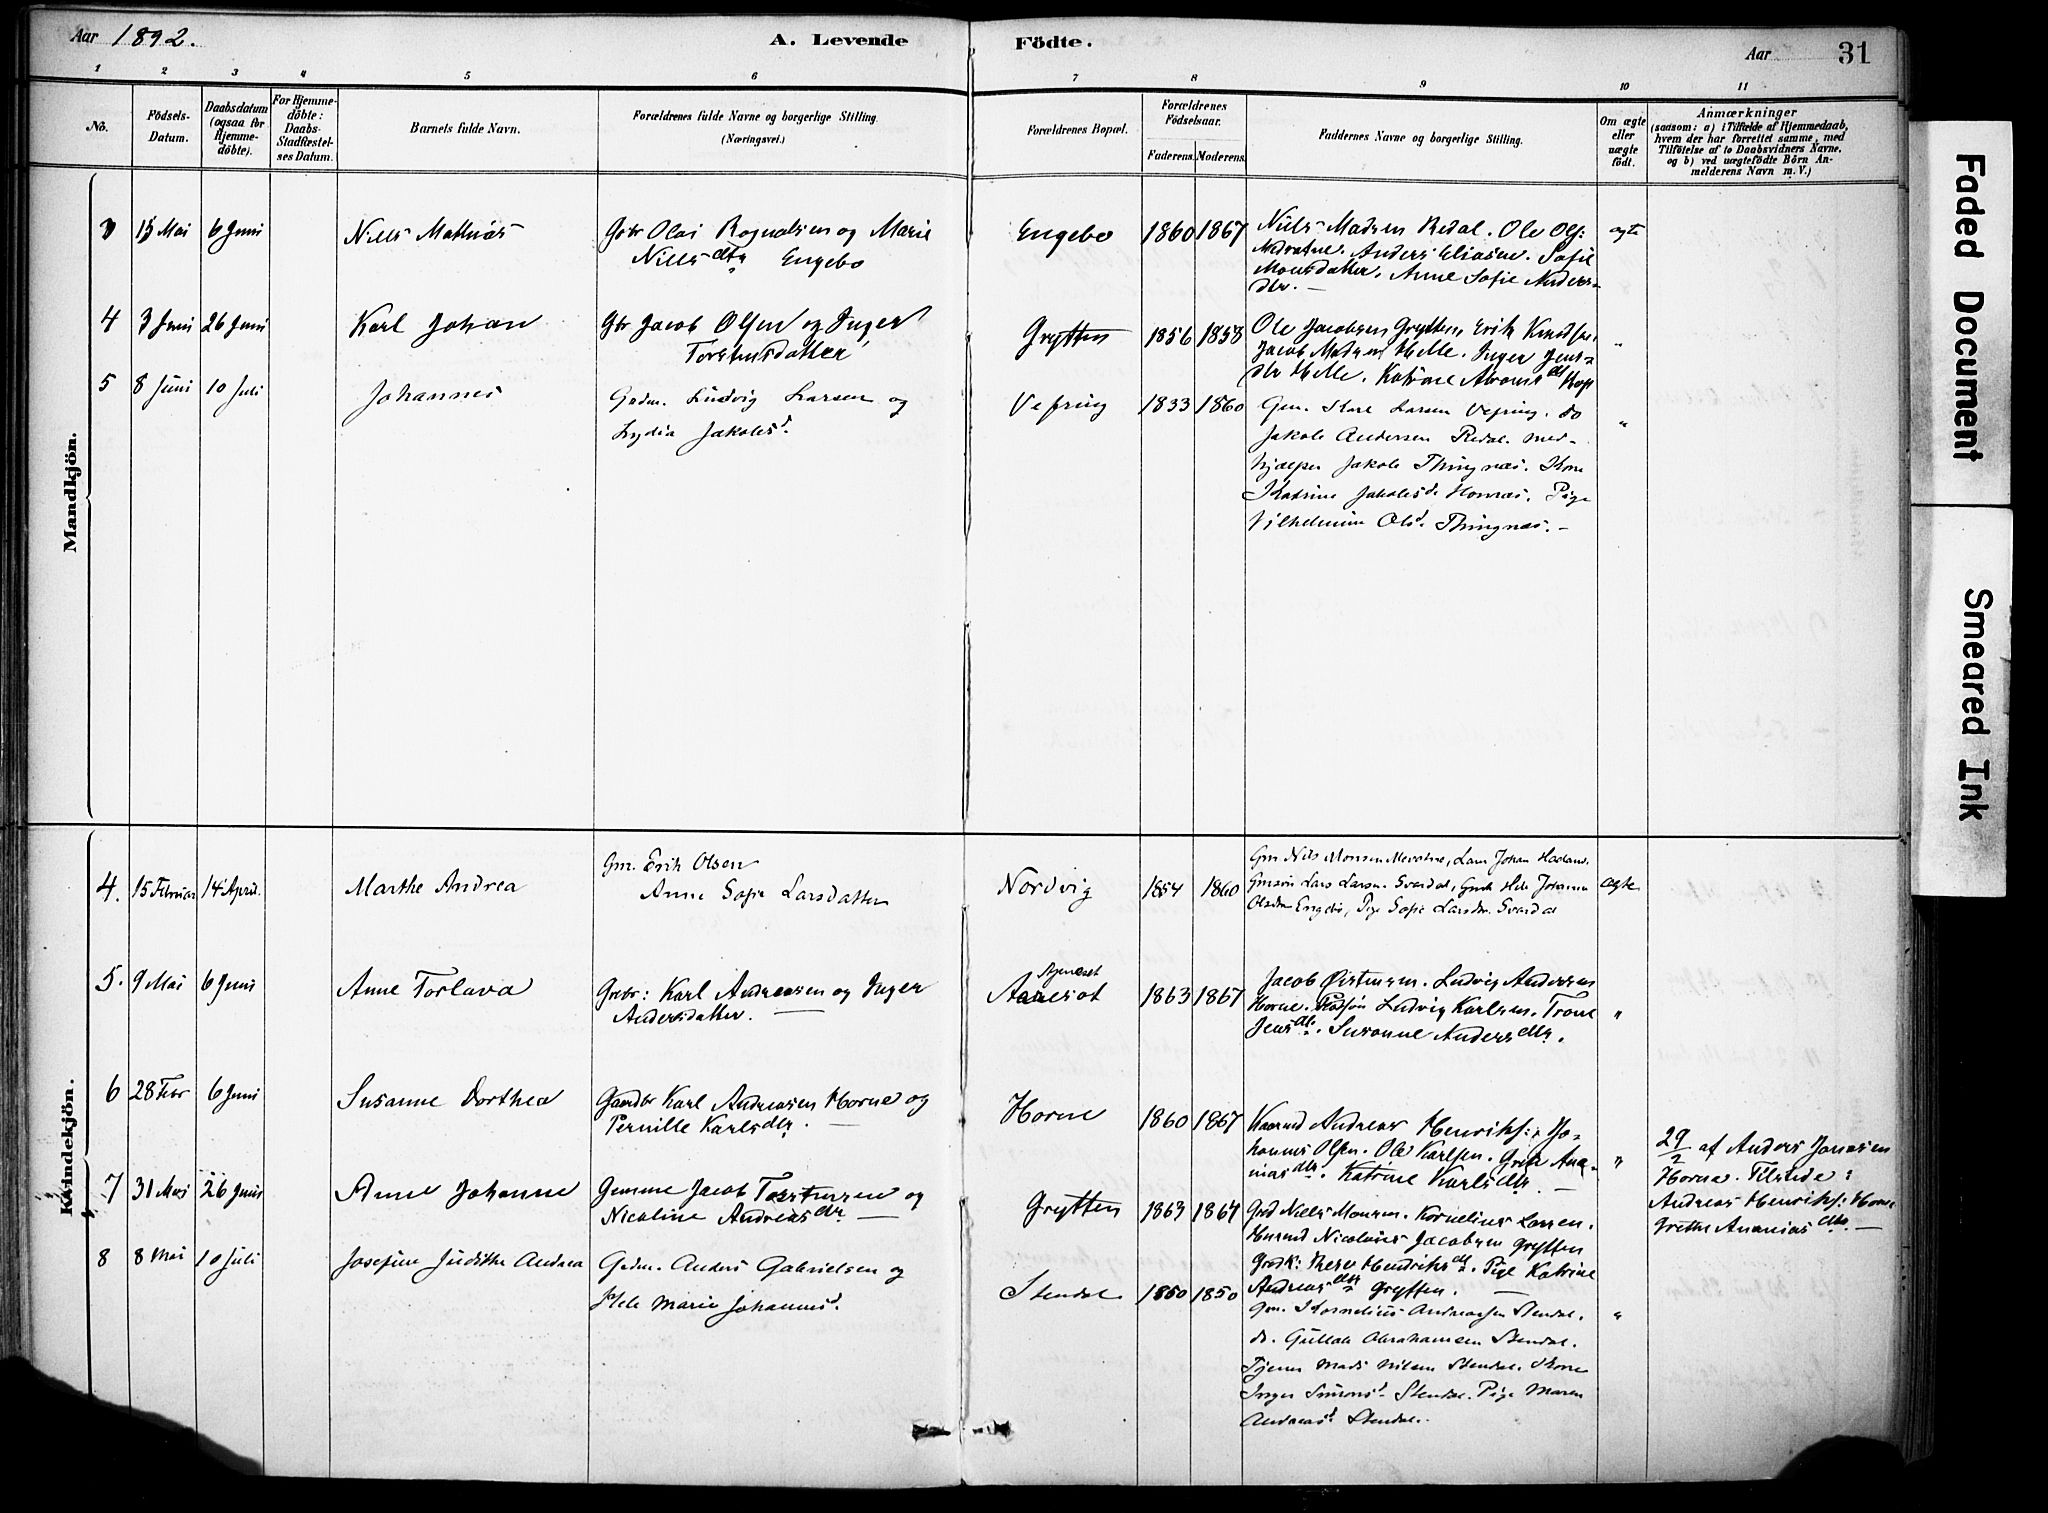 Aar 1892.
A. Levende Födte.
Aar
31
1 2 3 4 5 6 7 8 9 10 11
No.
Födsels-Datum.
Daabsdatum (ogsaa for Hjemme-döbte).
For Hjemme-döbte: Daabs-Stadfæstel-ses Datum.
Barnets fulde Navn.
Forældrenes fulde Navne og borgerlige Stilling. (Næringsvei.)
Forældrenes Bopæl.
Forældrenes Födselsaar.
Faderens. Moderens.
Faddernes Navne og borgerlige Stilling.
Om ægte eller uægte födt.
Anmærkninger (saasom: a) i Tilfælde af Hjemmedaab, hvem der har forrettet samme, med Tilföielse af to Daabsvidners Navne, og b) ved uægtefödte Börn An-melderens Navn m. V.)
Mandkjön.
3 15 Mai 6 Juni Niels Mathias
Gbr Olai Rognalsen og Marie
Nielsdtr Engebø
Engebø 1860 1867
Niels Madsen Redal. Ole Ols:
Nedvatne. Anders Eliasen. Sofie
Monsdatter. Anne Sofie Anders-
dtr. —
ægte
4 3 Juni 26 Juni Karl Johan
Gbr Jacob Olsen og Inger
Torstensdatter
Grytten 1856 1858
Ole Jacobsen Grytten, Erik Knudsen
Jacob Madsen Helle. Inger Jens-
dtr Helle. Katrine
"
5 8 Juni 10 Juli Johannes
Gadm. Ludvig Larsen og
Lydia Jakobsd.
Vefring 1833 1860
Gm. Kare Larsen Vefring. do
Jakob Andersen Redal. med-
hjælper Jakob Thingnæs. Kone
Katrine Jakobsd. Hornæs. Pige
Vilhelmine Olsd. Thingnæs. —
"
Kvindekjön.
4. 15 Februar 14 April. Marthe Andrea
Gm. Erik Olsen
Anne Sofie Larsdatter
Nordvig 1854 1860
Gm Nils Monsen Nevatne, Lars Johan
Gmsøn Lars Larsen Svardal, Johanne
Olsdtr Engebø, Pige Sofie Larsdtr. Svardal
ægte
5. 9 Mai 6 Juni Anne Torlava
Grbr: Karl Andreasen og Inger
Andersdatter. —
1863 1867
Jacob Østensen. Ludvig Andersen
Horne. Ludvig Karlsen. Trone
Jensdtr. Susanne Andersdtr.
"
6 28 Febr 6 Juni Susanne Dorthea
Gaardbr Karl Andreasen Horne og
Pernille Karlsdtr. —
Horne 1860 1867
Andreas Henriks: Jo-
hannes Olsen. Ole Karlsen. Grete Ana-
niasdtr. Katrine Karlsdtr. —
"
29/2 af Anders Jonasen
Horne. Tilstede:
Andreas Henriks: Horne
Grethe Ananiasdtr. —
7 31 Mai 26 Juni Anne Johanne
Gmme Jacob Torstensen og
Nicoline Andreasdtr. —
Grytten 1863 1864
Gbd Niels Monsen. Kornelius Larsen.
Nicolaus Jacobsen Grytten
Hendriksdtr. Pige Katrine
Andreasdtr Grytten. —
8 8 Mai 10 Juli Josefine Judithe Andrea
Gadm. Anders Gabrielsen og
Marie Johannesd.
Stendal 1850 1850
Gm. Kornelius Andreassen Stendal.
do. Gullak Abrahamsen Stendal.
Tjener Mads Nilsen Stendal. Kone
Inger Simonsd. Stendal. Pige Maren
Andreasd. Stendal.
"
Faded Document
Smeared Ink